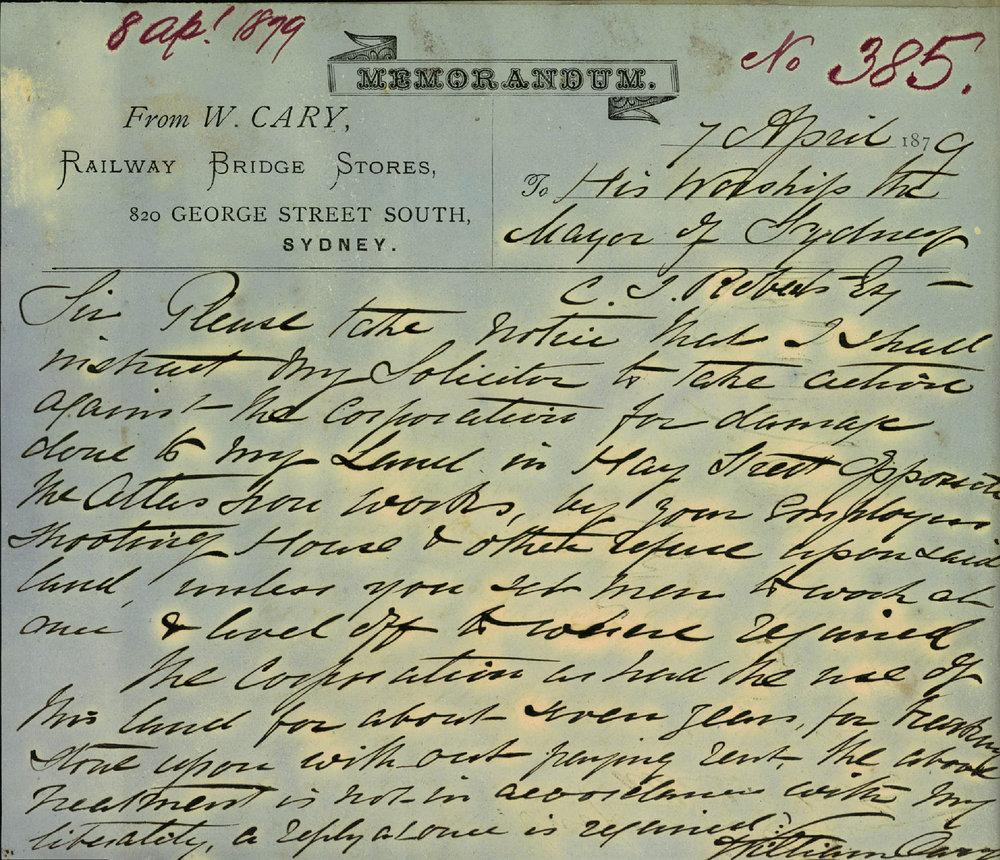 8 apl. 1879
No 385.
MEMORANDUM.
From W. CARY,
RAILWAY BRIDGE STORES,
820 GEORGE STREET SOUTH,
SYDNEY.
7 April 1879
To His Worship the
Mayor of Sydney
C. J. Roberts Esq –
Sir Please take notice that I shall
instruct my Solicitor to take action
against the Corporation for damage
done to my Land in Hay Street opposite
the Atlas Iron Works, by your Employees
shooting House & other refuse upon said
land, unless you set men to work at
once & level off to where required
The Corporation as had the use of
this land for about seven years, for breaking
stone upon with out paying rent. The above
treatment is not in accordance with my
liberality, a reply at once is required.
William Cary